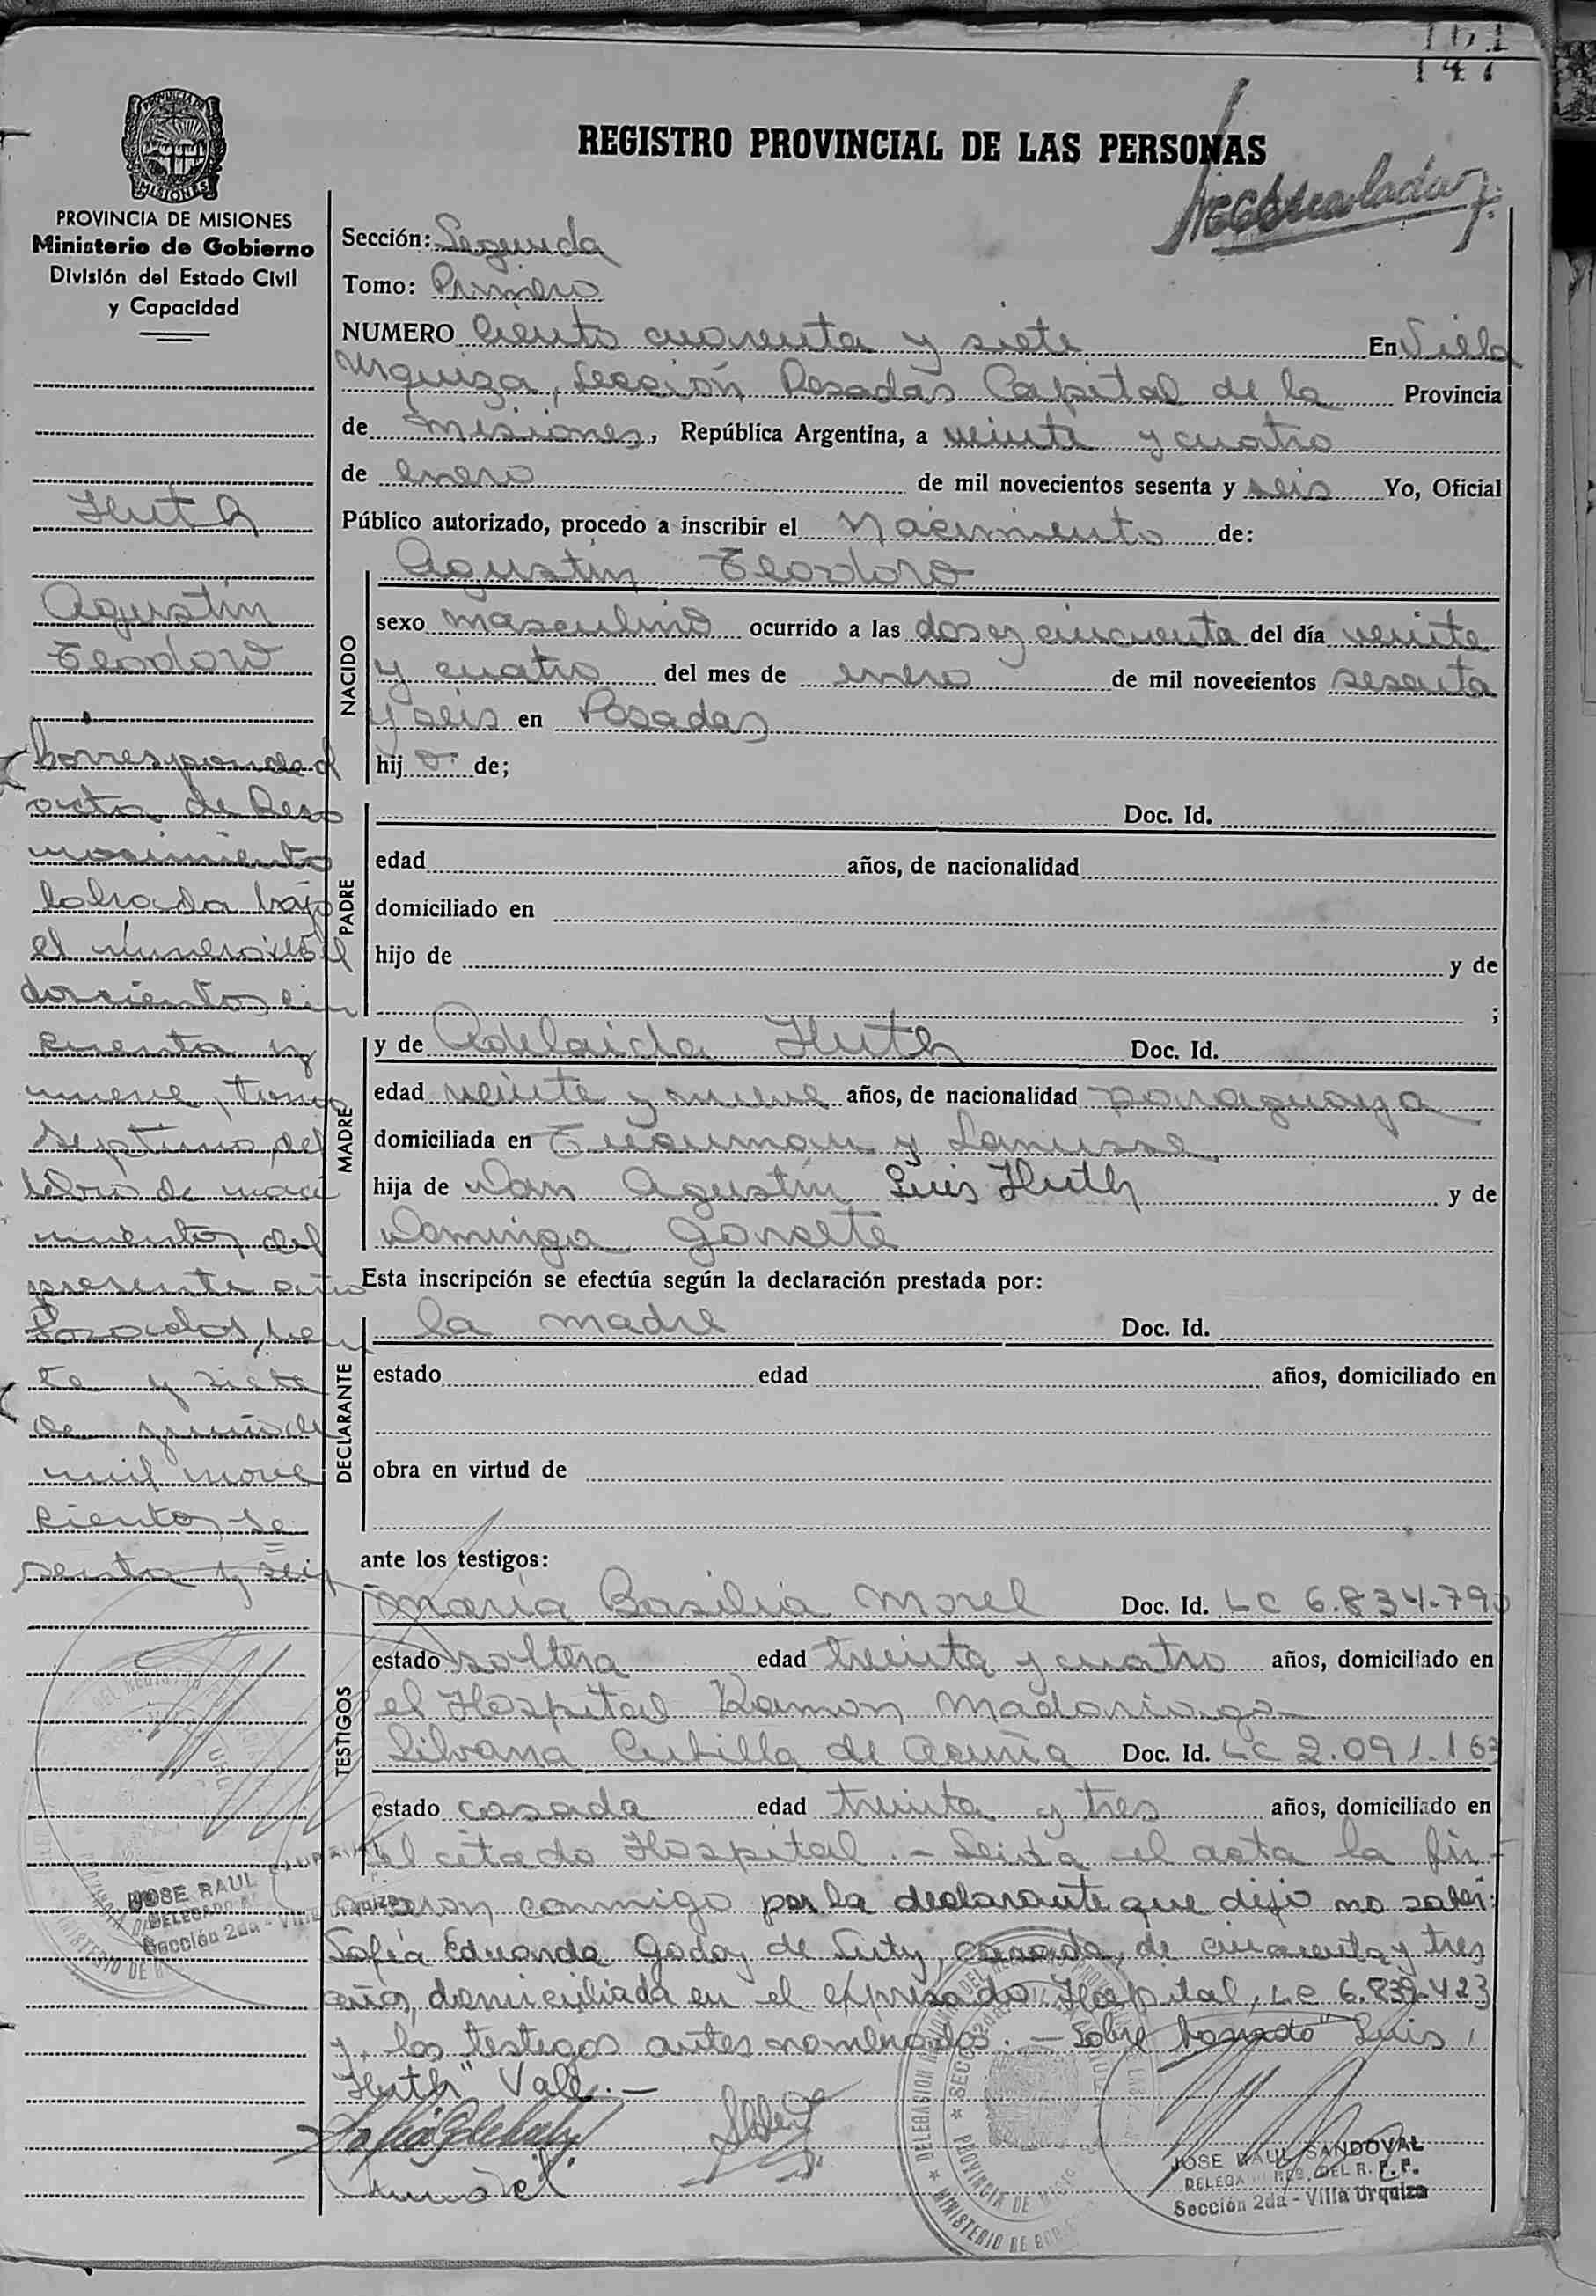 147
REGISTRO PROVINCIAL DE LAS PERSONAS
PROVINCIA DE MISIONES
Ministerio de Gobierno
División del Estado Civil
y Capacidad
Sección: Segunda
Tomo: Primero
NUMERO Ciento cuarenta y siete En Villa
Urquiza, Sección Posadas Capital de la Provincia
de Misiones, República Argentina, a veinte y cuatro
de enero de mil novecientos sesenta y seis Yo, Oficial
Público autorizado, procedo a inscribir el Nacimiento de:
Huth
Agustín
Teodoro
NACIDO
Agustín Teodoro
sexo masculino ocurrido a las dos y cincuenta del día veinte
y cuatro del mes de enero de mil novecientos sesenta
y seis en Posadas
hij o de;
PADRE
Doc. Id.
edad años, de nacionalidad
domiciliado en
hijo de y de
;
MADRE
y de Adelaida Huth Doc. Id.
edad veinte y nueve años, de nacionalidad paraguaya
domiciliada en Tucuman y Lanusse
hija de Don Agustín Luis Huth y de
Dominga
Esta inscripción se efectúa según la declaración prestada por:
DECLARANTE
la madre Doc. Id.
estado edad años, domiciliado en
obra en virtud de
ante los testigos:
TESTIGOS
María Basilia Morel Doc. Id. LC 6.834.790
estado soltera edad treinta y cuatro años, domiciliado en
el Hospital Ramon Madariaga
Silvana de Acuña Doc. Id. LC 2.091.163
estado casada edad treinta y tres años, domiciliado en
el citado Hospital.- Leida el acta la fir-
maron conmigo por la declarante que dijo no saber:
Sofía Eduarda Godoy de casada, de cuarenta y tres
años, domiciliada en el expresado Hospital, LC 6.839.423
y los testigos antes nombrados.- Sobre borrado "Luis
Huth" Vale.-
Corresponde al
acta de Reco
nocimiento
labrada bajo
el número mil
doscientos cin
cuenta y
nueve, tomo
septimo del
libro de naci
mientos del
presente año
Posadas, vein
te y siete
de junio de
mil nove
cientos se
senta y seis
JOSE RAUL
DELEGADO
Sección 2da - Villa
JOSE RAUL SANDOVAL
DELEGADO REG. DEL R. P. P.
Sección 2da - Villa Urquiza